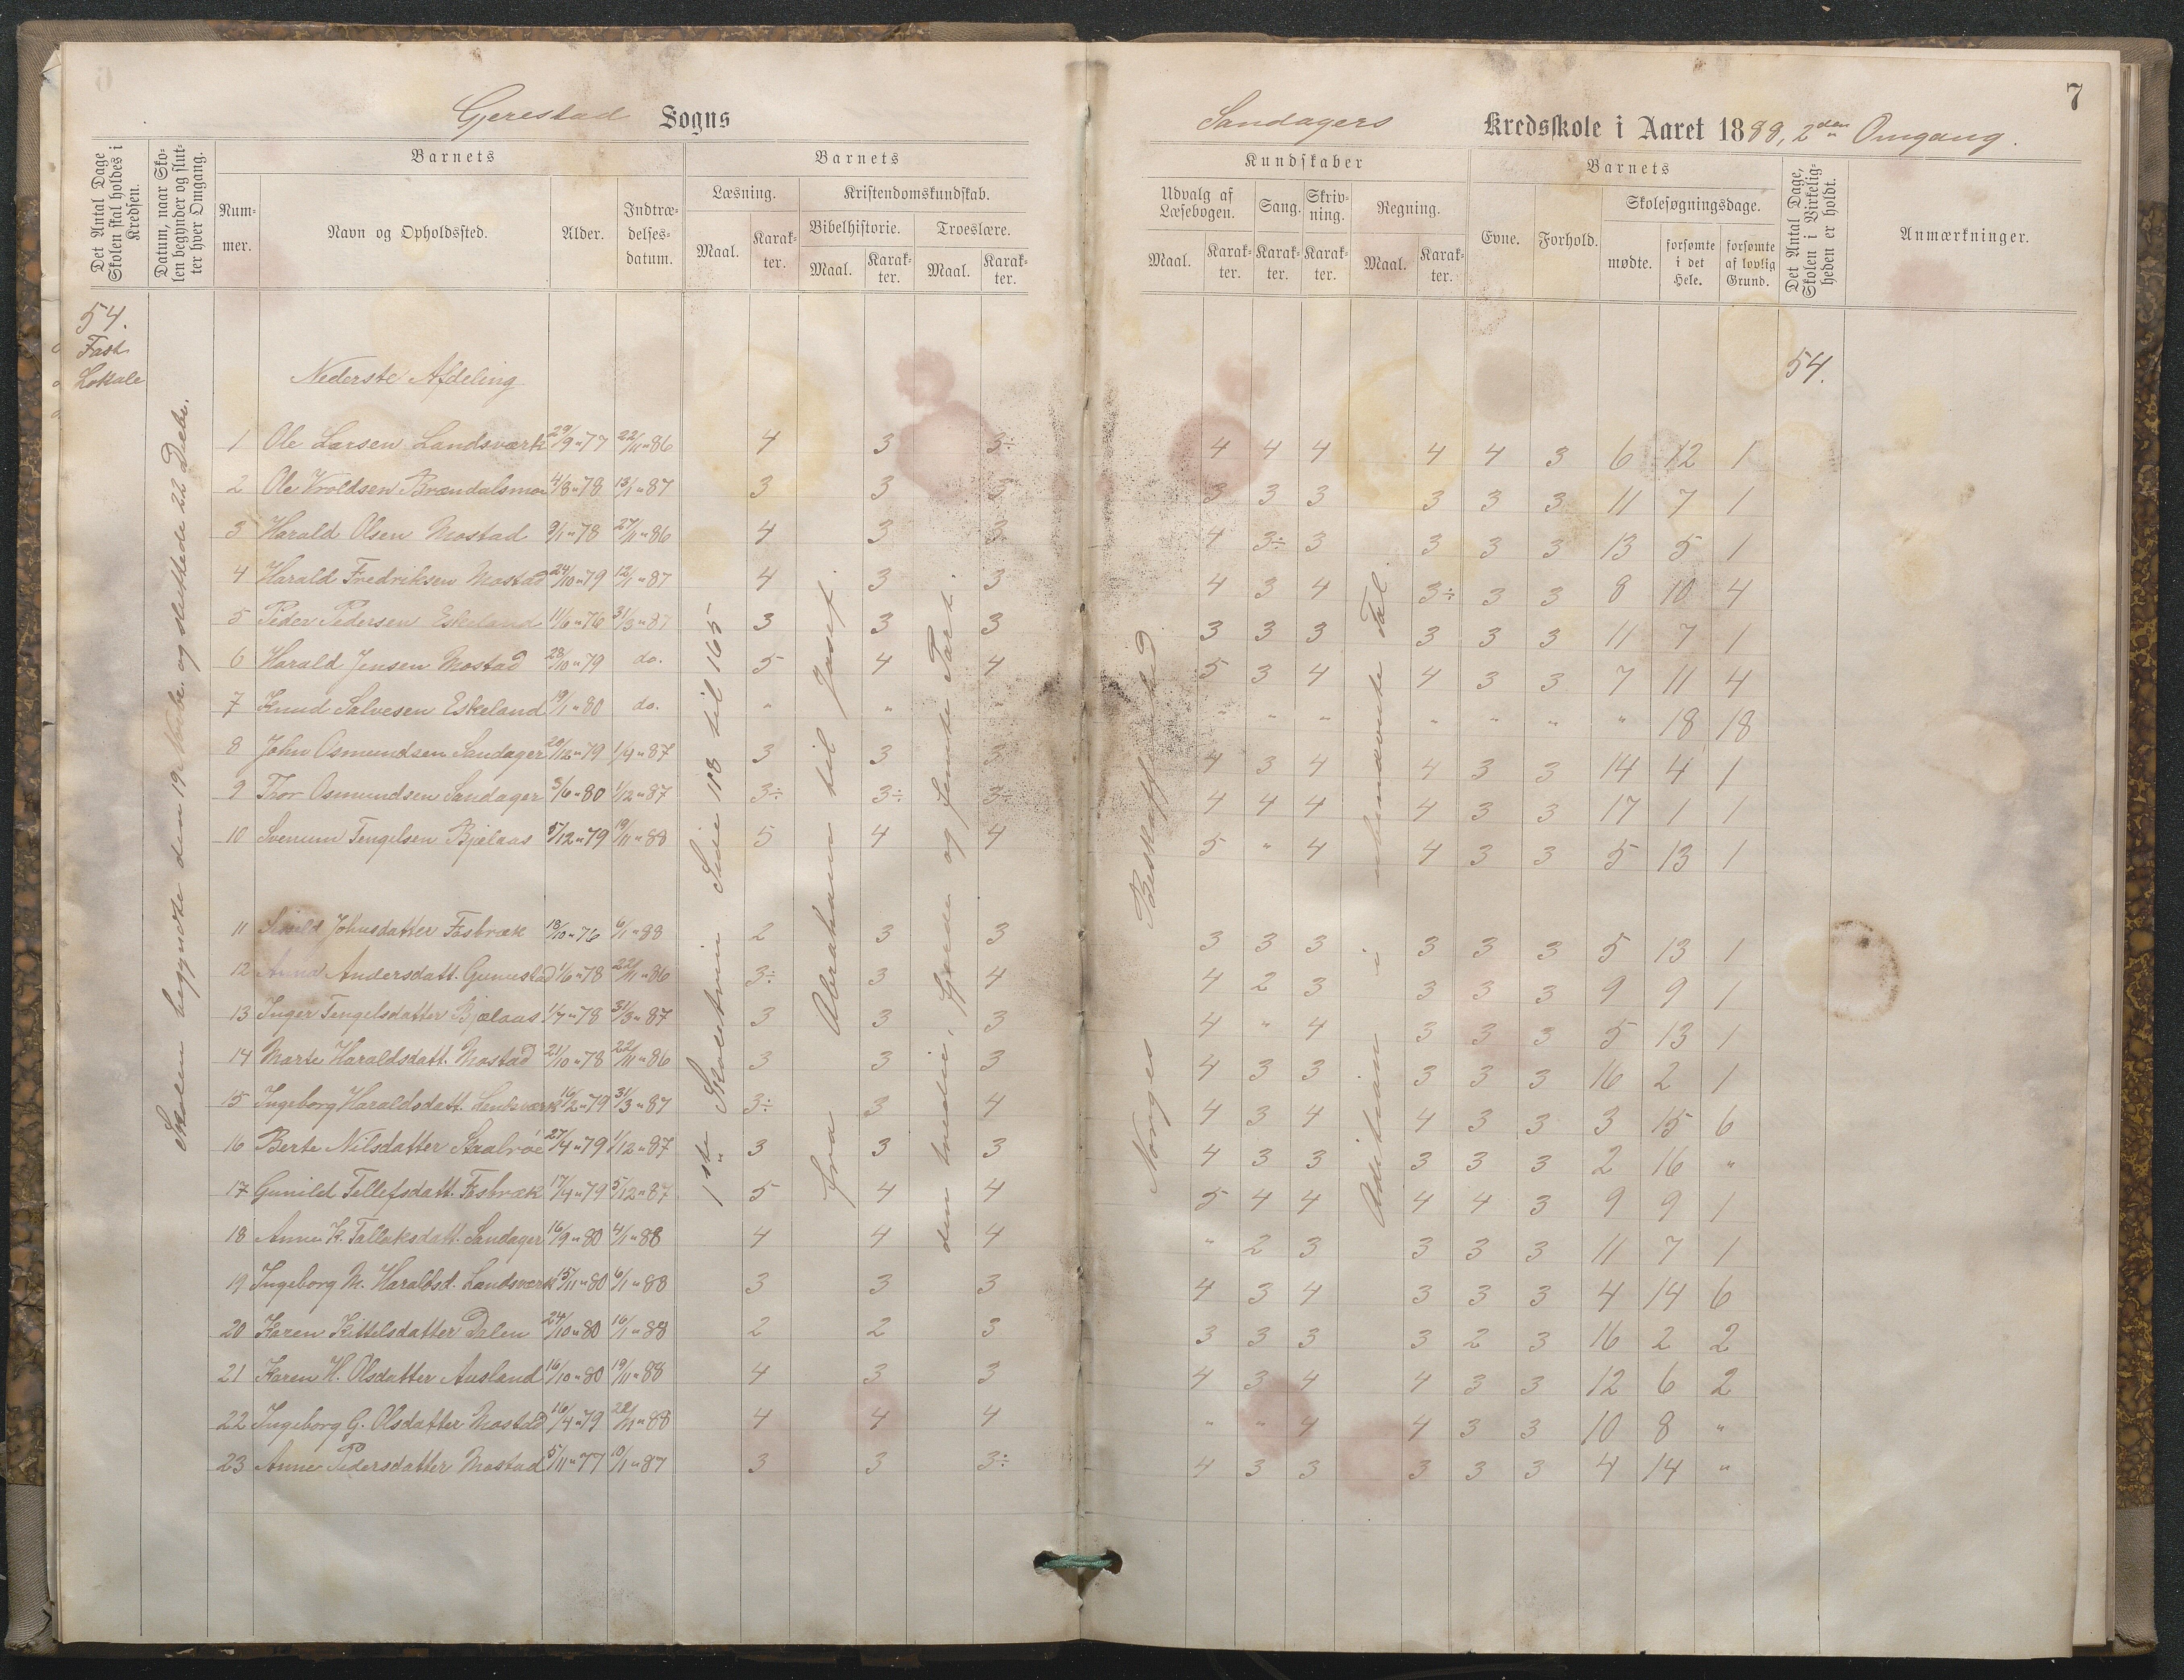 7
Gjerestad Sogns
Sandagers Kredsskole i Aaret 1888, 2den Omgang.
Det Antal Dage Skolen skal holdes i Kredsen.
Datum, naar Skolen begynder og slutter hver Omgang.
Barnets
Nummer.
Navn og Opholdssted.
Alder.
Indtrædelsesdatum.
Barnets
Læsning.
Maal.
Karakter.
Kristendomskundskab.
Bibelhistorie.
Maal.
Karakter.
Troeslære.
Maal.
Karakter.
Kundskaber
Udvalg af Læsebogen.
Maal.
Karakter.
Sang.
Karakter.
Skrivning.
Karakter.
Regning.
Maal.
Karakter.
Barnets
Evne.
Forhold.
Skolesøgningsdage.
mødte.
forsømte i det Hele.
forsømte af lovlig Grund.
Det Antal Dage, Skolen i Virkeligheden er holdt.
Anmærkninger.
54.
Fast
Lokale
Skolen begyndte den 19. Novbr. og sluttede 22 Decbr.
Nederste Afdeling
54.
1ste Skoletrin Side 118 til 165
Fra Abraham til Josef.
den tredie, fjerde og femte Part.
Norges Beskaffenhed
Addition i ubenævnte Tal.
1 Ole Larsen Landsværk 29/9 " 77 22/11 " 86 4 3 3÷ 4 4 4 4 4 3 6 12 1
2 Ole Troldsen Brændalsmo 4/8 " 78 13/1 " 87 3 3 3 3 3 3 3 3 3 11 7 1
3 Harald Olsen Mostad 9/1 " 78 27/11 " 86 4 3 3 4 3÷ 3 3 3 3 13 5 1
4 Harald Fredriksen Mostad 24/10 " 79 12/1 " 87 4 3 3 4 3 4 3÷ 3 3 8 10 4
5 Peder Pedersen Eskeland 11/6 " 76 31/3 " 87 3 3 3 3 3 3 3 3 3 11 7 1
6 Harald Jensen Mostad 28/10 " 79 do. 5 4 4 5 3 4 4 3 3 7 11 4
7 Knud Salvesen Eskeland 19/1 " 80 do. " " " " " " " " " " 18 18
8 John Osmundsen Sandager 20/12 " 79 1/4 " 87 3 3 3 4 3 4 4 3 3 14 4 1
9 Thor Osmundsen Sandager 3/6 " 80 1/12 " 87 3÷ 3÷ 3÷ 4 4 4 4 3 3 17 1 1
10 Svenum Tengelsen Bjelaas 5/12 " 79 19/11 " 88 5 4 4 5 " 4 4 3 3 5 13 1
11 Johnsdatter Fosbræk 18/10 " 76 6/1 " 88 2 3 3 3 3 3 3 3 3 5 13 1
12 Anna Andersdatt. 1/6 " 78 22/11 " 86 3÷ 3 4 4 2 3 3 3 3 9 9 1
13 Inger Tengelsdatter Bjelaas 1/7 " 78 31/3 " 87 3 3 3 4 " 4 3 3 3 5 13 1
14 Marte Haraldsdatt. Mostad 21/10 " 78 22/11 " 86 3 3 3 4 3 3 3 3 3 16 2 1
15 Ingeborg Haraldsdatt. Landsværk 16/2 " 79 31/3 " 87 3÷ 3 4 4 3 4 4 3 3 3 15 6
16 Berte Nilsdatter Skaalvoe 27/4 " 79 1/12 " 87 3 3 3 4 3 3 3 3 3 2 16 "
17 Gunild Tellefsdatt. Fosbræk 17/4 " 79 5/12 " 87 5 4 4 5 4 4 4 4 3 9 9 1
18 Anne K. Tallaksdatt. Sandager 16/9 " 80 4/1 " 88 4 4 4 " 2 3 3 3 3 11 7 1
19 Ingeborg M. Haraldsd. Landsværk 15/11 " 80 6/1 " 88 3 3 3 4 3 4 3 3 3 4 14 6
20 Karen Kittelsdatter Dalen 24/10 " 80 16/1 " 88 2 2 3 3 3 3 3 2 3 16 2 2
21 Karen H. Olsdatter Ausland 16/10 " 80 19/11 " 88 4 3 3 4 3 4 4 3 3 12 6 2
22 Ingeborg G. Olsdatter Mostad 16/4 " 79 22/11 " 88 4 4 4 " " 4 4 3 3 10 8 "
23 Anne Pedersdatter Mostad 5/11 " 77 10/1 " 87 3 3 3÷ 4 3 3 3 3 3 4 14 "